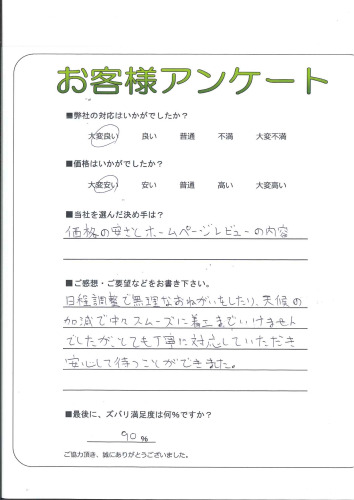 お客様アンケート
■弊社の対応はいかがでしたか?
大変良い 良い 普通 不満 大変不満
■価格はいかがでしたか?
大変安い 安い 普通 高い 大変高い
■当社を選んだ決め手は?
価格の安さとホームページレビューの内容
■ご感想・ご要望などをお書き下さい。
日程調整で無理なおねがいをしたり、天候の
加減で中々スムーズに着工までいけません
でしたが、とても丁寧に対応していただき
安心して待つことができました。
■最後に、ズバリ満足度は何%ですか?
90 %
ご協力頂き、誠にありがとうございました。